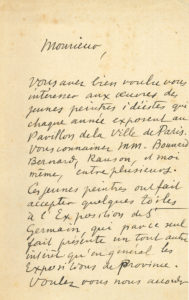 Monsieur,
Vous avez bien voulu vous
intéresser aux œuvres des
jeunes peintres idéistes qui
chaque année exposent au
Pavillon de la Ville de Paris.
Vous connaissez MM. Bonnard
Bernard, Ranson, et moi
même, entre plusieurs.
Ces jeunes peintres ont fait
accepter quelques toiles
à l'Exposition de St
Germain, qui par ce seul
fait présente un tout autre
intérêt qu'en général les
Expositions de province.
Voulez vous nous accorder